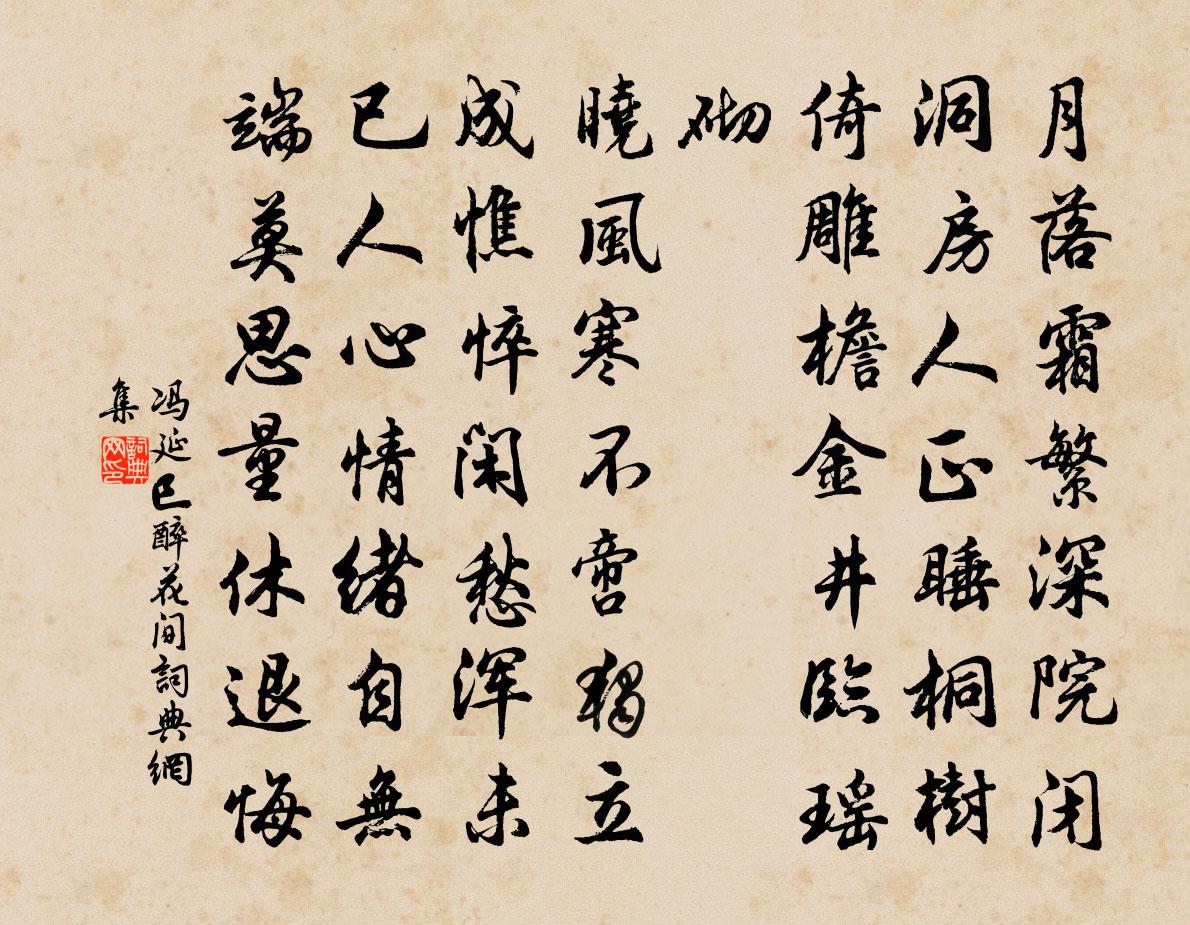 月落霜繁深院闭
洞房人正睡桐樹
倚雕檐金井臨瑶
砌
曉風寒不啻獨立
成憔悴闲愁浑未
已人心情緒自無
端莫思量休退悔
冯延巳醉花间詞典網
集
詞典
网印